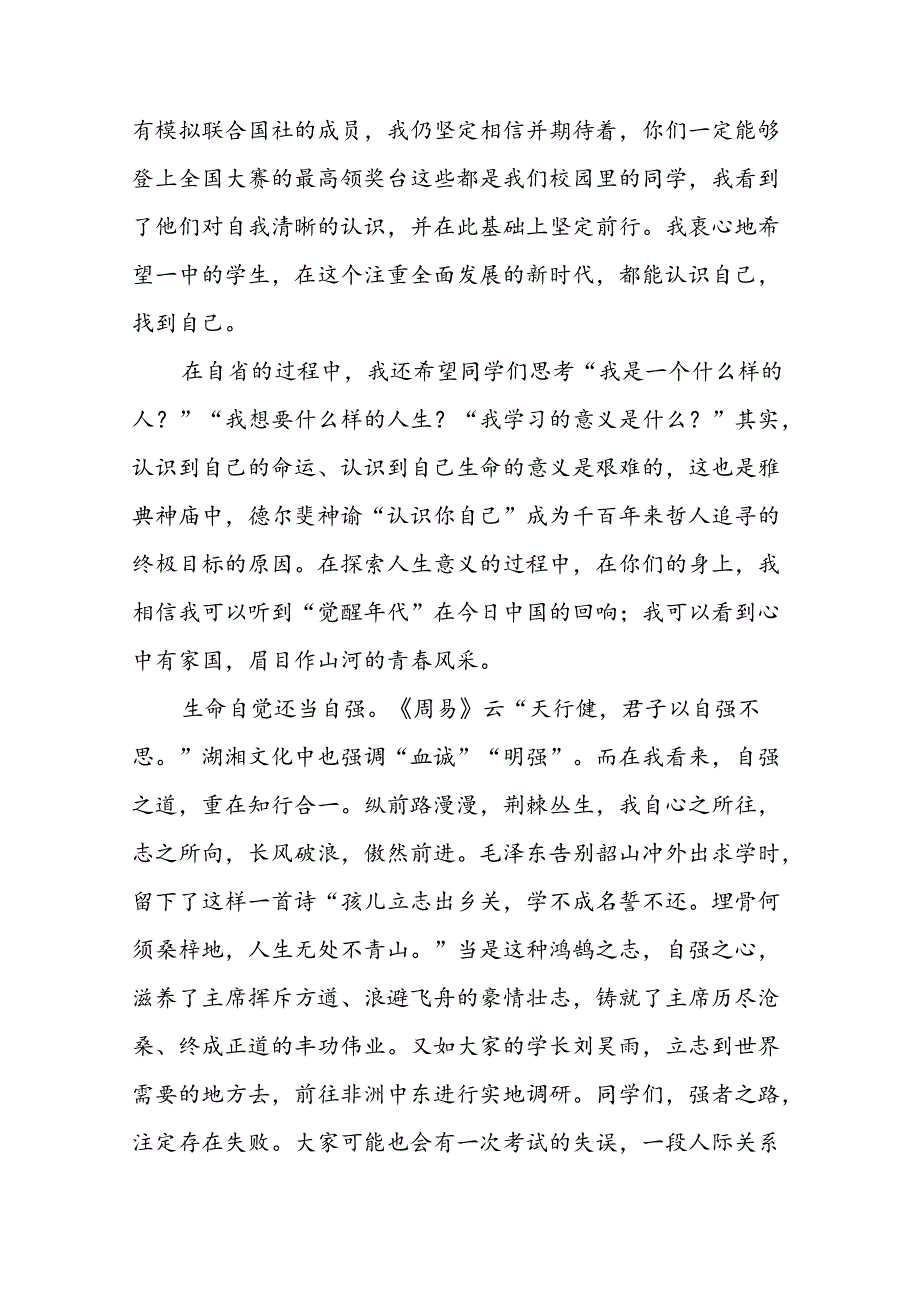 有模拟联合国社的成员，我仍坚定相信并期待着，你们一定能够
登上全国大赛的最高领奖台这些都是我们校园里的同学，我看到
了他们对自我清晰的认识，并在此基础上坚定前行。我衷心地希
望一中的学生，在这个注重全面发展的新时代，都能认识自己，
找到自己。
在自省的过程中，我还希望同学们思考“我是一个什么样的
人？”“我想要什么样的人生？“我学习的意义是什么？”其实，
认识到自己的命运、认识到自己生命的意义是艰难的，这也是雅
典神庙中，德尔斐神谕“认识你自己”成为千百年来哲人追寻的
终极目标的原因。在探索人生意义的过程中，在你们的身上，我
相信我可以听到“觉醒年代”在今日中国的回响；我可以看到心
中有家国，眉目作山河的青春风采。
生命自觉还当自强。《周易》云“天行健，君子以自强不
思。”湖湘文化中也强调“血诚”“明强”。而在我看来，自强
之道，重在知行合一。纵前路漫漫，荆棘丛生，我自心之所往，
志之所向，长风破浪，傲然前进。毛泽东告别韶山冲外出求学时，
留下了这样一首诗“孩儿立志出乡关，学不成名誓不还。埋骨何
须桑梓地，人生无处不青山。”当是这种鸿鹄之志，自强之心，
滋养了主席挥斥方道、浪避飞舟的豪情壮志，铸就了主席历尽沧
桑、终成正道的丰功伟业。又如大家的学长刘昊雨，立志到世界
需要的地方去，前往非洲中东进行实地调研。同学们，强者之路，
注定存在失败。大家可能也会有一次考试的失误，一段人际关系